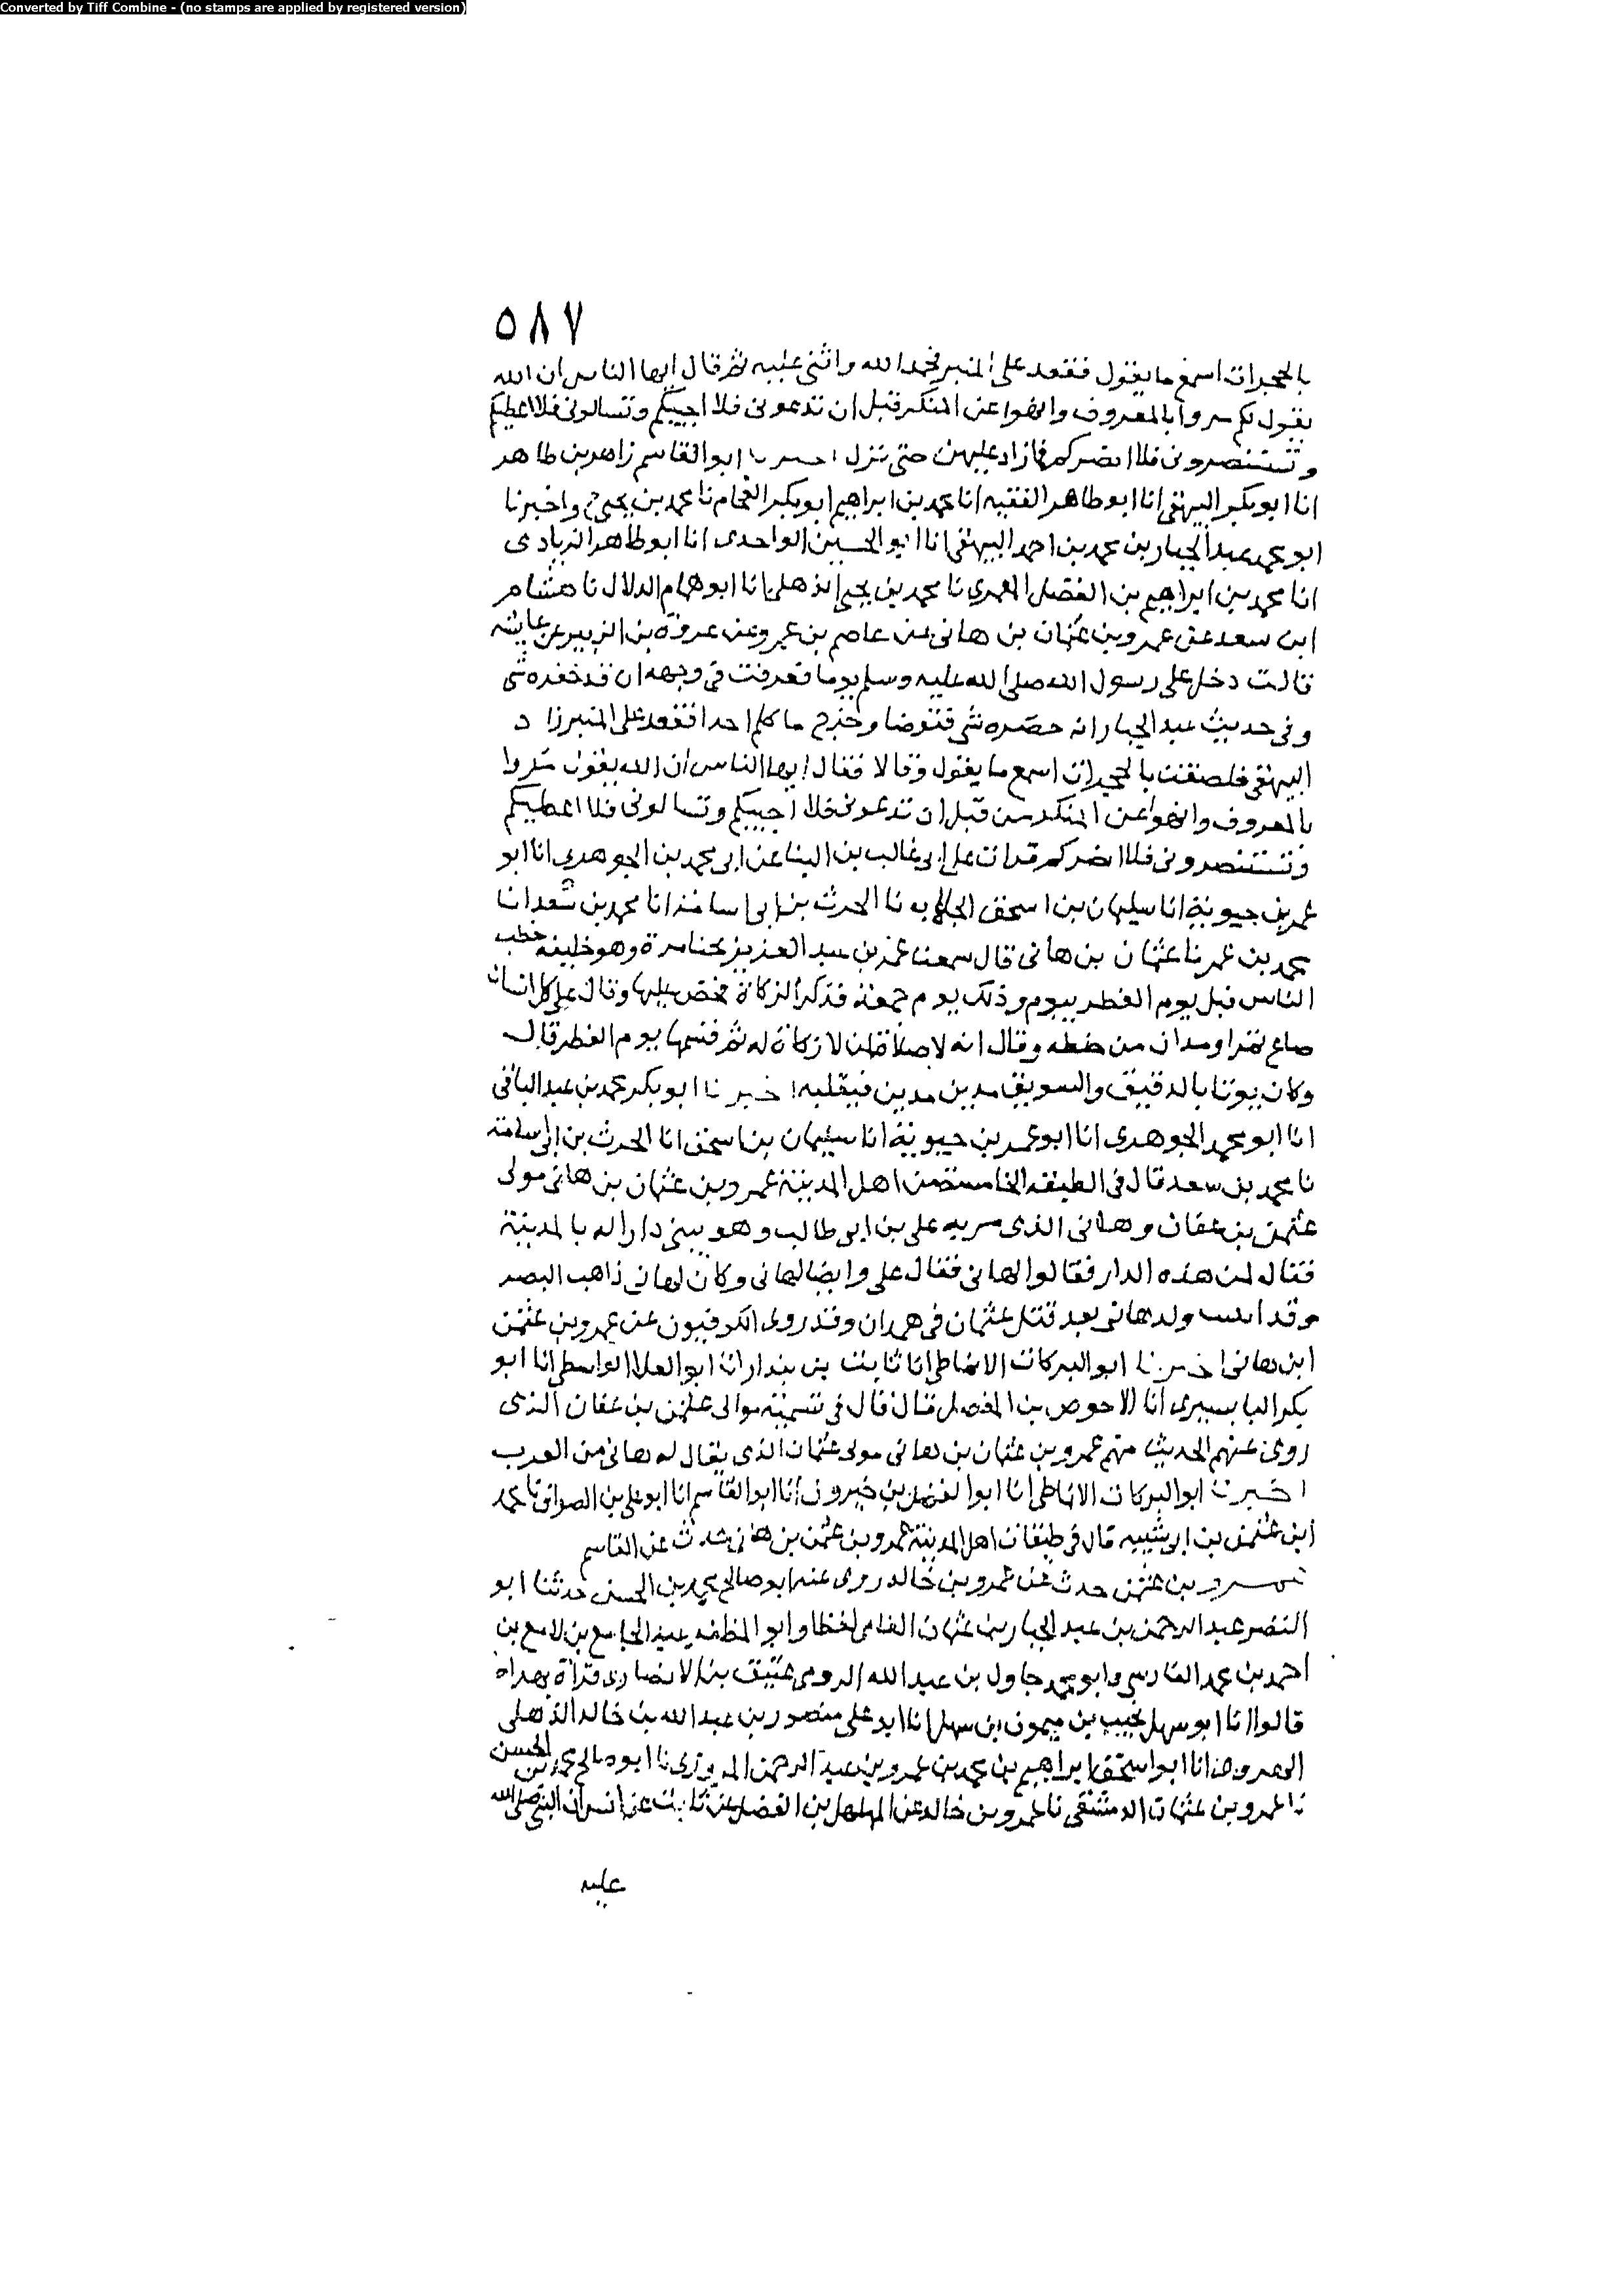 Converted by Tiff Combine - (no stamps are applied by registered version)
٥٨٧
بالحجرات اسمع ما يقول فقعد على المنبر فحمد الله واثنى عليه ثم قال ايها الناس ان الله
يقول لكم مروا بالمعروف وانهوا عن المنكر قبل ان تدعونى فلا اجيبكم وتسالونى فلا اعطيكم
وتستنصرونى فلا انصركم فما زاد عليهن حتى نزل اخبرنا ابو القاسم زاهر بن طاهر
انا ابو بكر البيهقى انا ابو طاهر الفقيه انا محمد بن ابراهيم ابو بكر الفحام نا محمد بن يحيى ح واخبرنا
ابو محمد عبد الجبار بن محمد بن احمد البيهقى انا ابو الحسين الواحدى انا ابو طاهر الزيادى
انا محمد بن ابراهيم بن الفضل نا محمد بن يحيى الذهلى انا ابو همام الدلال نا هشام
ابن سعد عن عمرو بن عثمان بن هانى عن عاصم بن عمر وعن عروة بن الزبير عن عايشه
قالت دخل على رسول الله صلى الله عليه وسلم يوما فعرفت فى وجهه ان قد حفزه شى
وفى حديث عبد الجبار انه حضره شى فتوضا وخرج ما كلم احدا فقعد على المنبر زا د
البيهقى فلصقت بالحجرات اسمع ما يقول وقالا فقال ايها الناس ان الله يقول مروا
بالمعروف وانهوا عن المنكر من قبل ان تدعونى فلا اجيبكم وتسالونى فلا اعطيكم
وتستنصرونى فلا انصركم قرات على ابى غالب بن البنا عن ابى محمد بن الجوهرى انا ابو
عمر بن حيوية انا سليمان بن اسحق الجلاب نا الحرث بن ابى اسامة انا محمد بن سعد انا
محمد بن عمر نا عثمان بن هانى قال سمعنا عمر بن عبد العزيز بخناصرة وهو خليفة خطب
الناس قبل يوم الفطر بيوم وذلك يوم جمعة فذكر الزكاة فحض عليها وقال على كل انسان
صاع تمر او مدان من حنطه وقال انه لا صلاة لمن لا زكاة له ثم قسمها يوم الفطر قال
وكان يوتا بالدقيق والسويق مدين مدين فيقلبه اخبرنا ابو بكر محمد بن عبد الباقى
انا ابو محمد الجوهرى انا ابو عمر بن حيوية انا سليمان بن اسحق انا الحرث بن ابى اسامة
نا محمد بن سعد قال فى الطبقه الخامسة من اهل المدينة عمرو بن عثمان بن هانى مولى
عثمن بن عفان وهانى الذى مر به على بن ابى طالب وهو يبنى دارا له بالمدينة
فقال لمن هذه الدار فقالوا لهانى فقال على وايضا لهانى وكان لهانى ذاهب البصر
وقد ولد هانى بعد قتل عثمان فى همدان وقد روى الكوفيون عن عمرو بن عثمن
ابن هانى اخبرنا ابو البركات الانماطى انا ثابت بن بندار انا ابو العلا الواسطى انا ابو
بكر البابسيرى انا الاحوص بن المفضل قال قال فى تسمية موالى عثمن بن عفان الذى
روى عنهم الحديث منهم عمرو بن عثمان بن هانى مولى عثمان الذى يقال له هانى من العرب
اخبرنا ابو البركات الانماطى انا ابو الفضل بن خيرون انا ابو القاسم انا ابو على بن الصواف نا محمد
ابن عثمن بن ابى شيبه قال فى طبقات اهل المدينة عمرو بن عثمن بن هانى حدث عن القاسم
عمرو بن عثمن حدث عن عمرو بن خالد روى عنه ابو صالح محمد بن الحسن حدثنا ابو
النضر عبد الرحمن بن عبد الجبار بن عثمان الفامى لفظا وابو المظفر عبد الجامع بن لامع بن
احمد بن محمد الفارسى وابو محمد جاول بن عبد الله الرومى عتيق بنا الانصارى قراة بهراة
قالوا انا ابو سهل نجيب بن ميمون بن سهل انا ابو على منصور بن عبد الله بن خالد الذهلى
الهروى انا ابو اسحق ابراهيم بن محمد بن عمرو بن عبد الرحمن المروزى نا ابو صالح محمد بن الحسن
نا عمرو بن عثمان الدمشقى نا عمرو بن خالد عن المهلهل بن الفضل عن ثابت عن انس ان النبى صلى الله
عليه